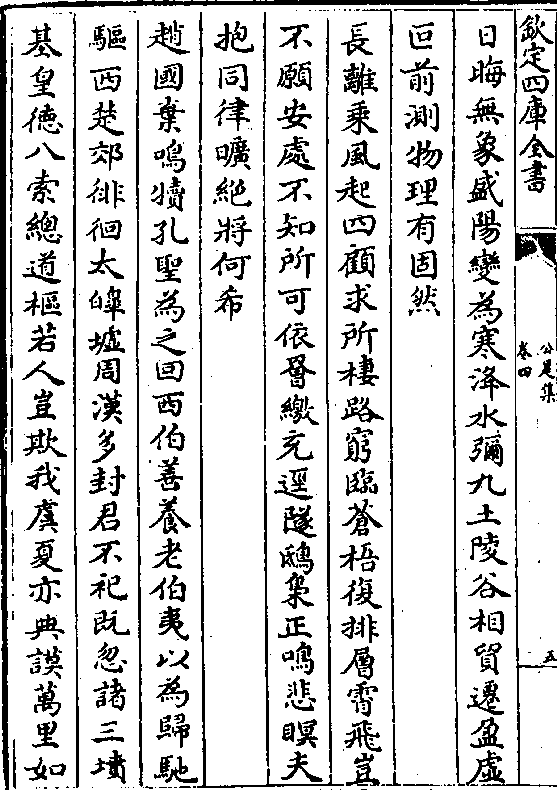 欽定四庫全書
公是集
卷四
五
日晦無象盛陽變為寒洚水彌九土陵谷相貿遷盈虛
叵前測物理有固然
長離乘風起四顧求所棲路窮臨蒼梧復排層霄飛豈
不願安處不知所可依罾繳充逕隧鴟梟正鳴悲瞑夫
抱同律曠絶將何希
趙國棄鳴犢孔聖為之回西伯善養老伯夷以為歸馳
驅西楚郊徘徊太皥墟周漢多封君不祀既忽諸三墳
基皇徳八索總道樞若人豈欺我虞夏亦典謨萬里如